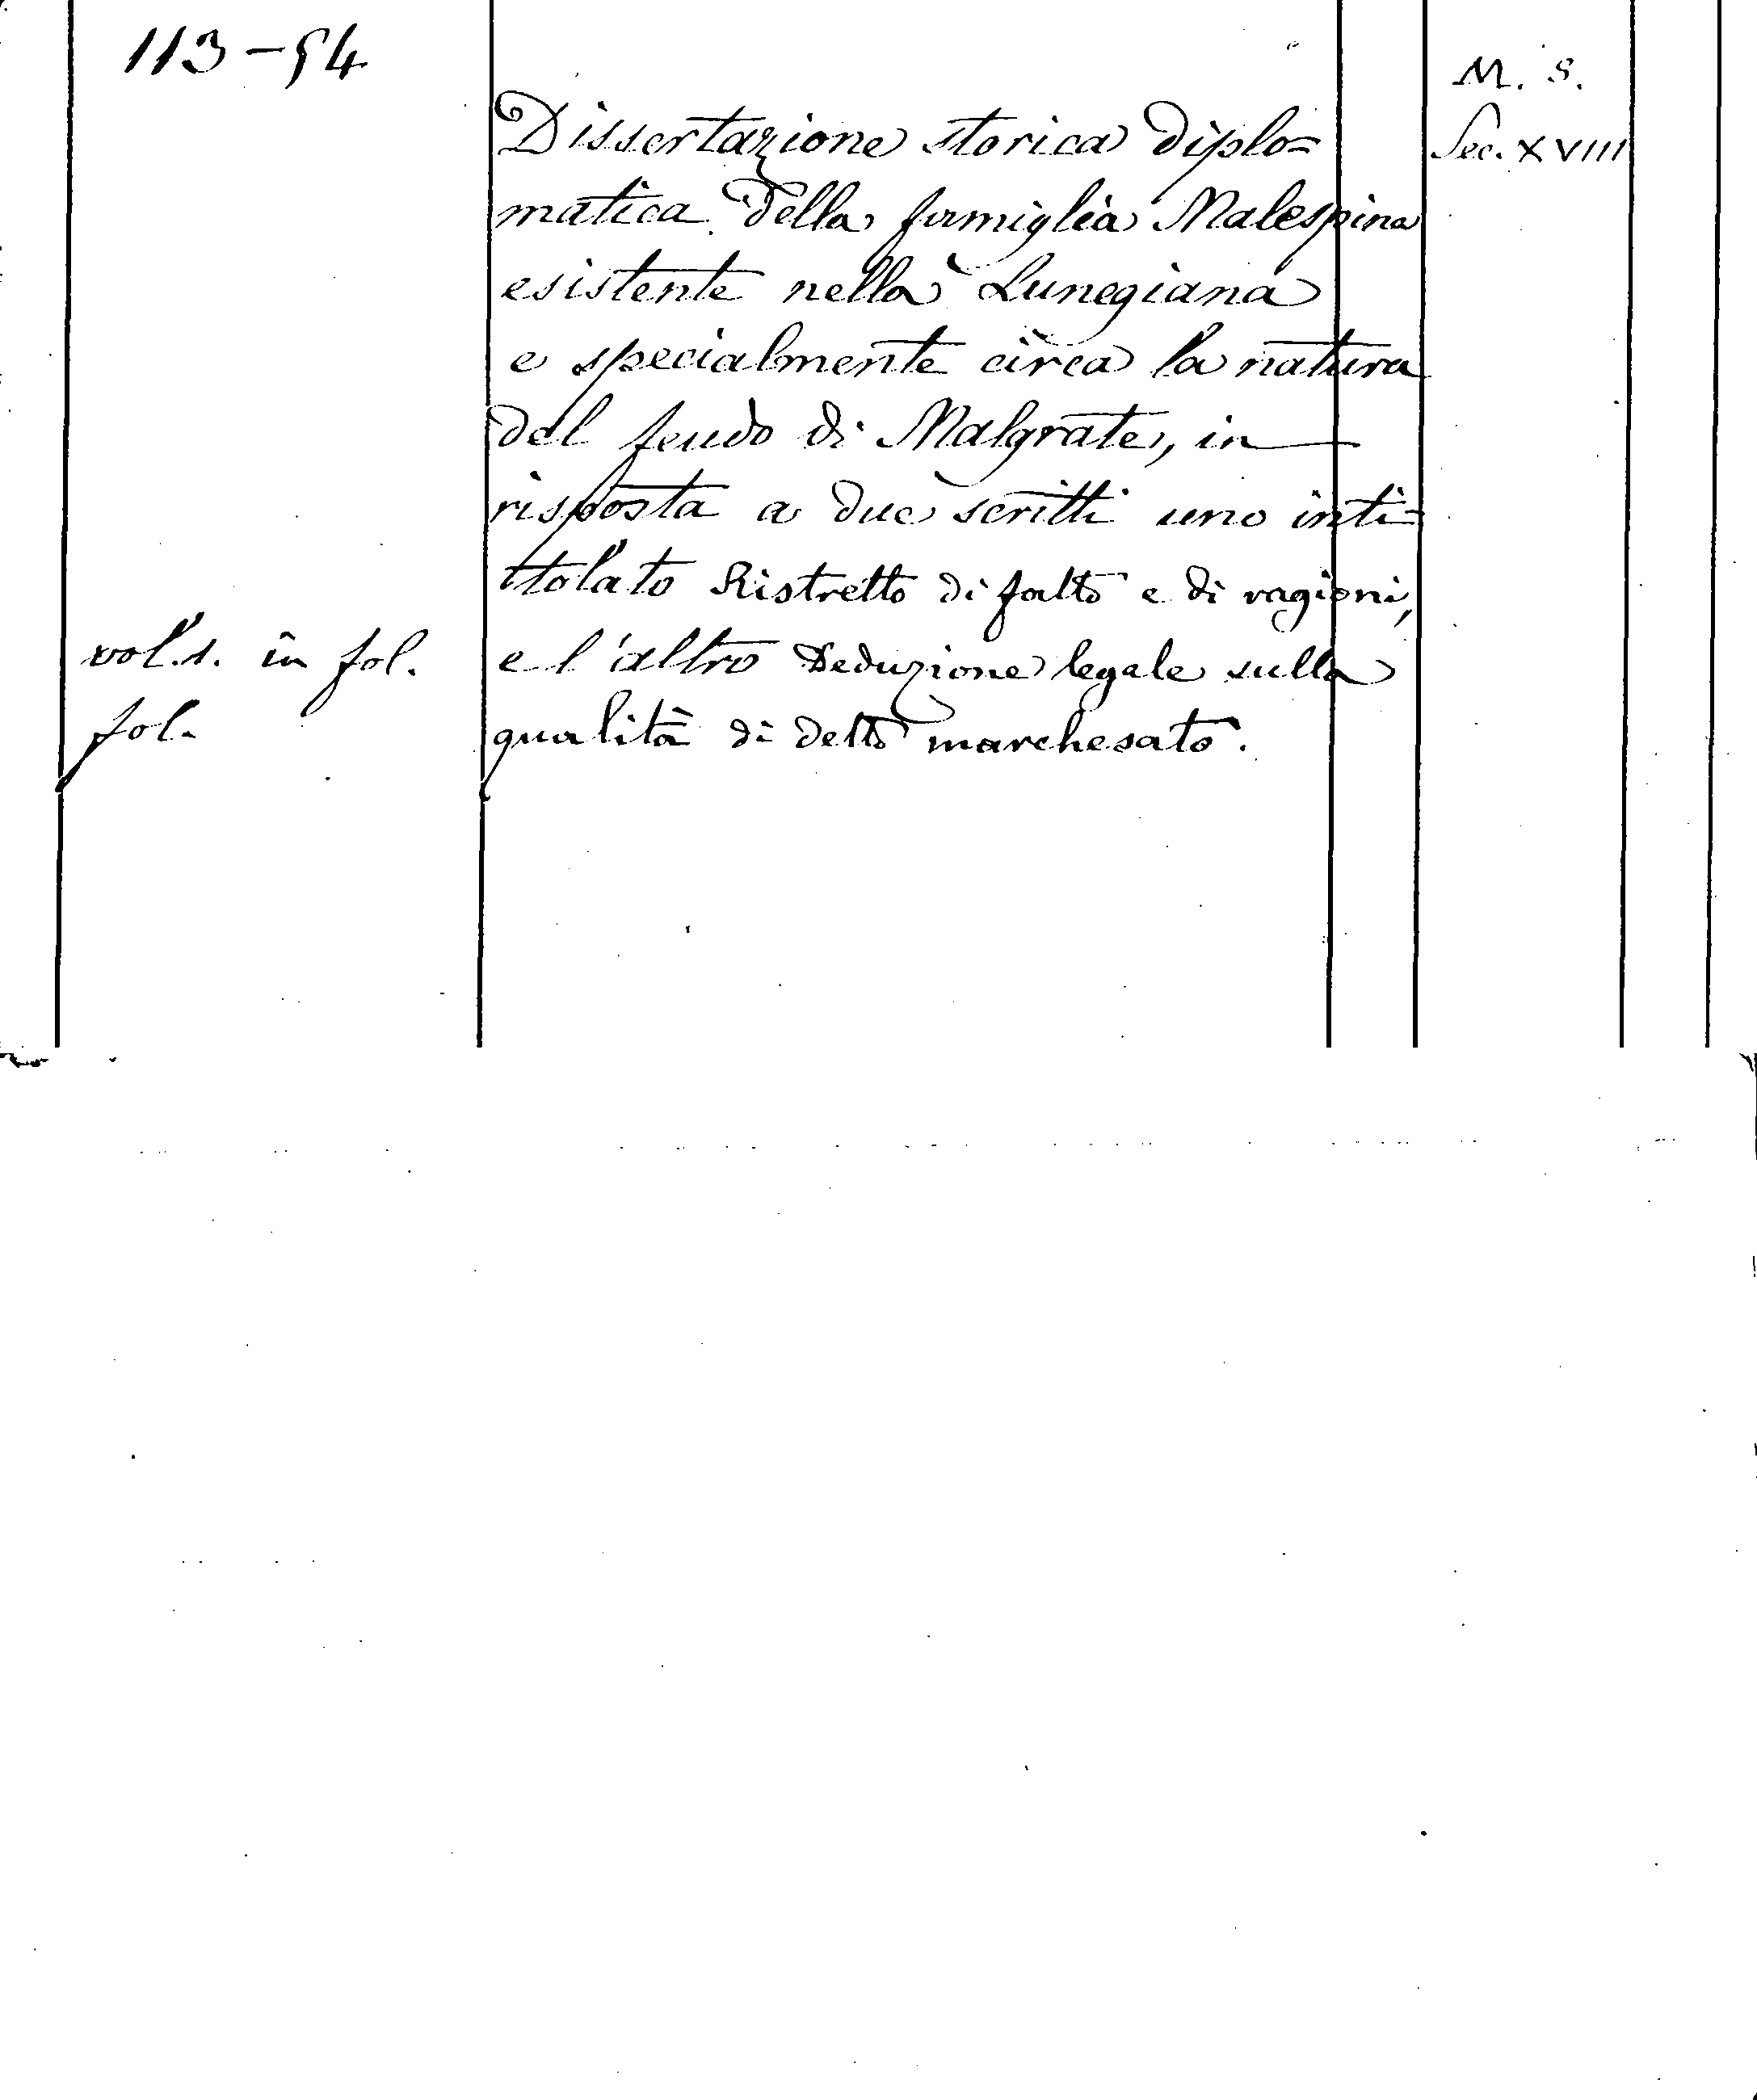 113-54
M. S.
Sec. XVIII
Dissertazione storica diplo=
matica della famiglia Malespina
esistente nella Lunegiana
e specialmente circa la natura
del feudo di Malgrate, in
risposta a due scritti uno inti=
tolato Ristretto di fatto e di ragioni,
e l'altro Deduzione legale sulla
qualità di detto marchesato.
vol. 1. in fol.
fol.